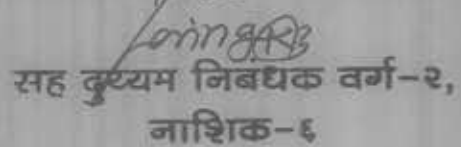 सह दुय्यम निबंधक वर्ग-२,
नाशिक-६